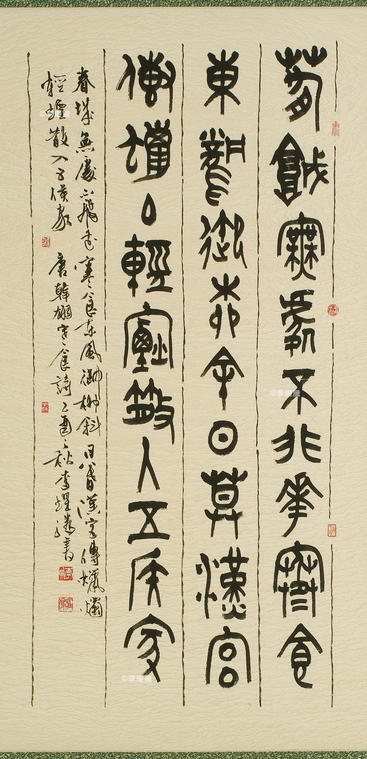 春城無處不飛花寒食
東風御柳斜日莫漢宮
傳蠟燭輕煙散入五侯家
春城無處不飛花寒食東風御柳斜日暮漢宮傳蠟燭
輕煙散入五侯家 唐韓翃寒食詩乙酉之秋李書